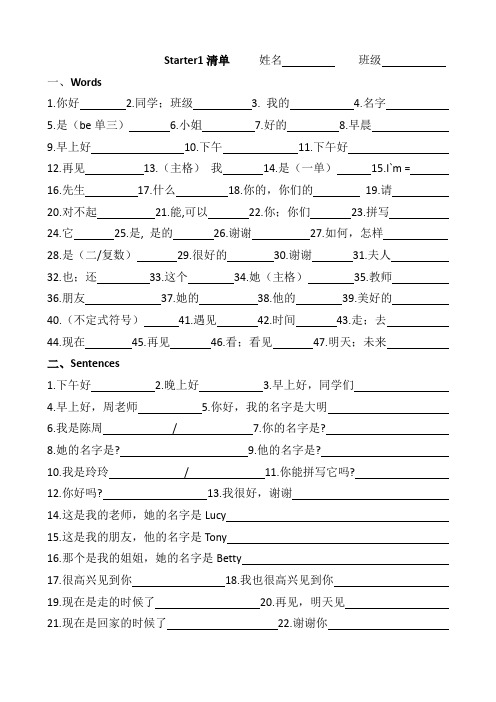 Starter1 清单 姓名________ 班级________
一、Words
1.你好________ 2.同学；班级________ 3. 我的________ 4.名字________
5.是（be 单三）________ 6.小姐________ 7.好的________ 8.早晨________
9.早上好________ 10.下午________ 11.下午好________
12.再见________ 13.（主格） 我________ 14.是（一单）________ 15.I`m =________
16.先生________ 17.什么________ 18.你的，你们的________ 19.请________
20.对不起________ 21.能,可以________ 22.你；你们________ 23.拼写________
24.它________ 25.是, 是的________ 26.谢谢________ 27.如何，怎样________
28.是（二/复数）________ 29.很好的________ 30.谢谢________ 31.夫人________
32.也；还________ 33.这个________ 34.她（主格）________ 35.教师________
36.朋友________ 37.她的________ 38.他的________ 39.美好的________
40.（不定式符号）________ 41.遇见________ 42.时间________ 43.走；去________
44.现在________ 45.再见________ 46.看；看见________ 47.明天；未来________
二、Sentences
1.下午好________ 2.晚上好________ 3.早上好，同学们________
4.早上好，周老师________ 5.你好，我的名字是大明________
6.我是陈周________/________ 7.你的名字是?________
8.她的名字是?________ 9.他的名字是?________
10.我是玲玲________/________ 11.你能拼写它吗?________
12.你好吗?________ 13.我很好，谢谢________
14.这是我的老师，她的名字是 Lucy________
15.这是我的朋友，他的名字是 Tony________
16.那个是我的姐姐，她的名字是 Betty________
17.很高兴见到你________ 18.我也很高兴见到你________
19.现在是走的时候了________ 20.再见，明天见________
21.现在是回家的时候了________ 22.谢谢你________